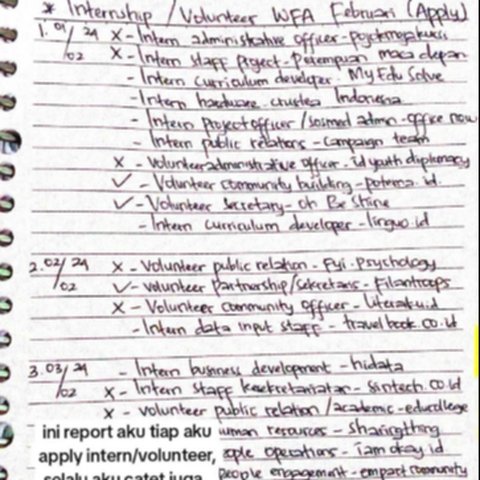 * Internship / Volunteer WFA Februari (Apply)
1. 01/02 24 X - Intern administrative officer -
X - Intern staff project - Perempuan masa depan
- Intern curriculum developer. My Edu Solve
- Intern hardware. Indonesia
- Intern project officer / sosmed admin - office now
- Intern public relations - campaign team
X - Volunteer administrative officer. id youth diplomacy
✓ - Volunteer community building - poterna.id.
✓ - Volunteer Secretary - Oh Be Shine
- Intern curriculum developer - linguo.id
2. 02/02 24 X - Volunteer public relation - Fyi - Psychology
✓ - Volunteer partnership / sekretaris - Filantroops
X - Volunteer community officer - literaku.id
- Intern data input staff - travelbook.co.id
3. 03/02 24 - Intern business development - hidata
X - Intern staff kesekretariatan - Sintech.co.id
X - volunteer public relation / academic - educollege
uman resources - sharingthing
ople operations - iamokay id
people engagement - empact community
ini report aku tiap aku
apply intern/volunteer,
selalu aku catet juga